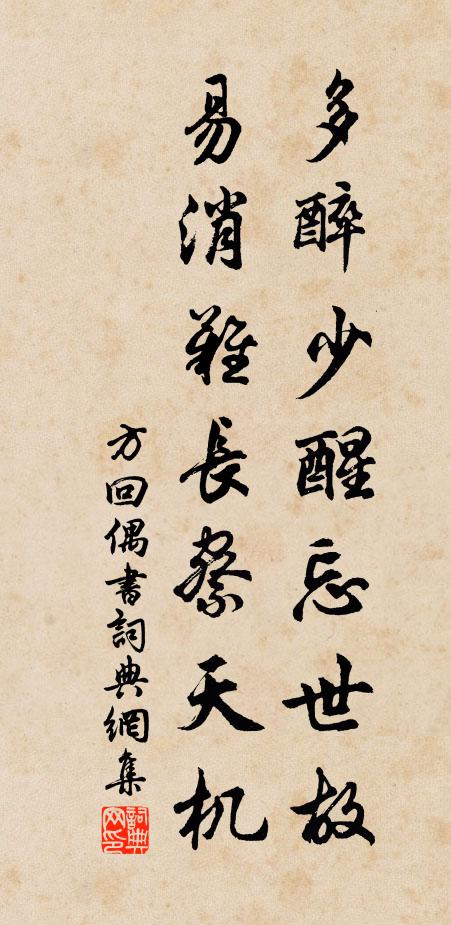 多醉少醒忘世故
易消難長察天机
方回偶書詞典網集
詞典网印